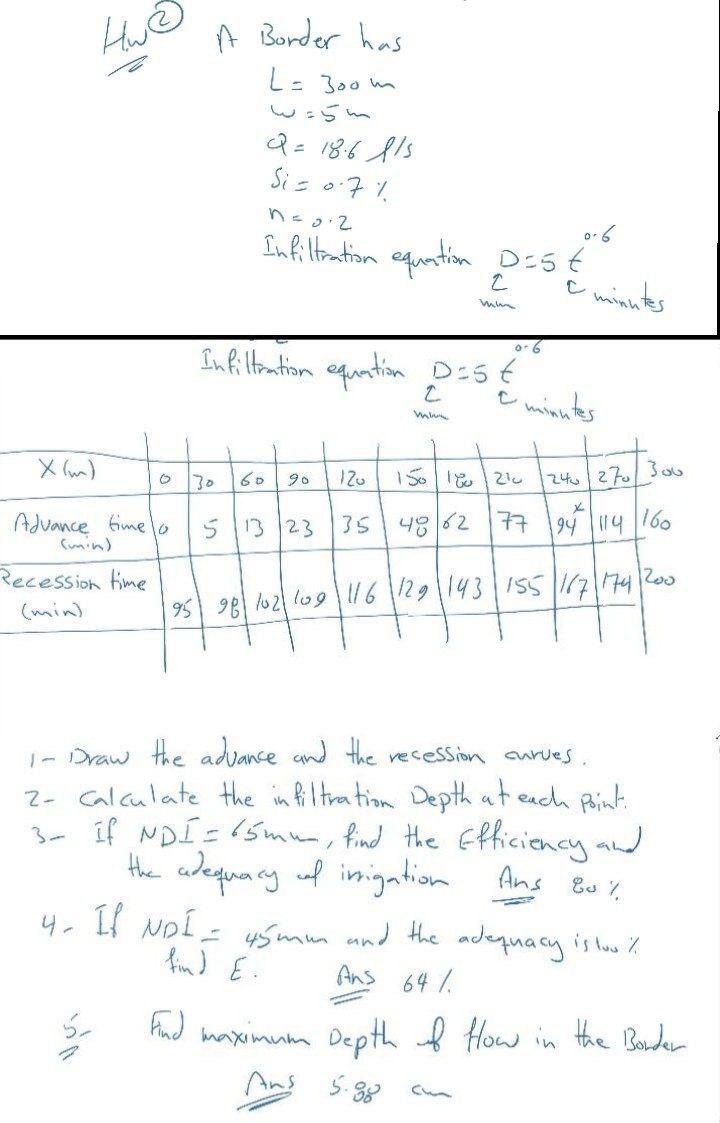 H.W 2 A Border has
L = 300 m
W = 5 m
Q = 18.6 l/s
Si = 0.7 %
n = 0.2
Infiltration equation D = 5 t^0.6
mm minutes
Infiltration equation D = 5 t^0.6
mm minutes
X (m) 0 30 60 90 120 150 180 210 240 270 300
Advance time (min) 0 5 13 23 35 48 62 77 94 114 160
Recession time (min) 95 98 102 109 116 129 143 155 167 174 200
1- Draw the advance and the recession curves.
2- Calculate the infiltration Depth at each point.
3- If NDI = 65mm, find the Efficiency and
the adequacy of irrigation Ans 80 %
4- If NDI = 45mm and the adequacy is 100 %
find E. Ans 64 %
5- Find maximum Depth of flow in the Border
Ans 5.88 cm